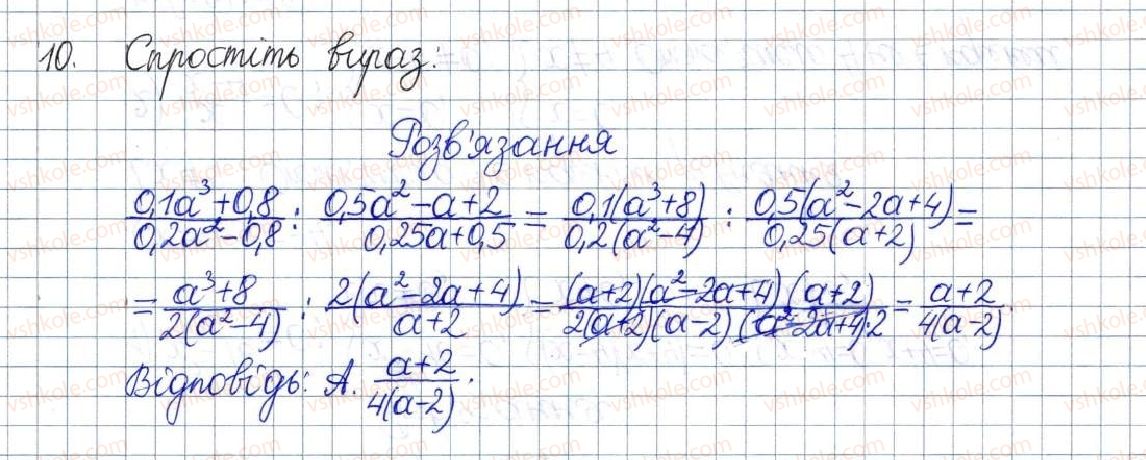 10. Спростіть вираз:
Розв'язання
(0,1a³+0,8)/(0,2a²-0,8) : (0,5a²-a+2)/(0,25a+0,5) = 0,1(a³+8)/0,2(a²-4) : 0,5(a²-2a+4)/0,25(a+2) =
= (a³+8)/2(a²-4) : 2(a²-2a+4)/(a+2) = (a+2)(a²-2a+4)(a+2)/2(a+2)(a-2)(a²-2a+4)·2 = (a+2)/4(a-2).
Відповідь: А. (a+2)/4(a-2).